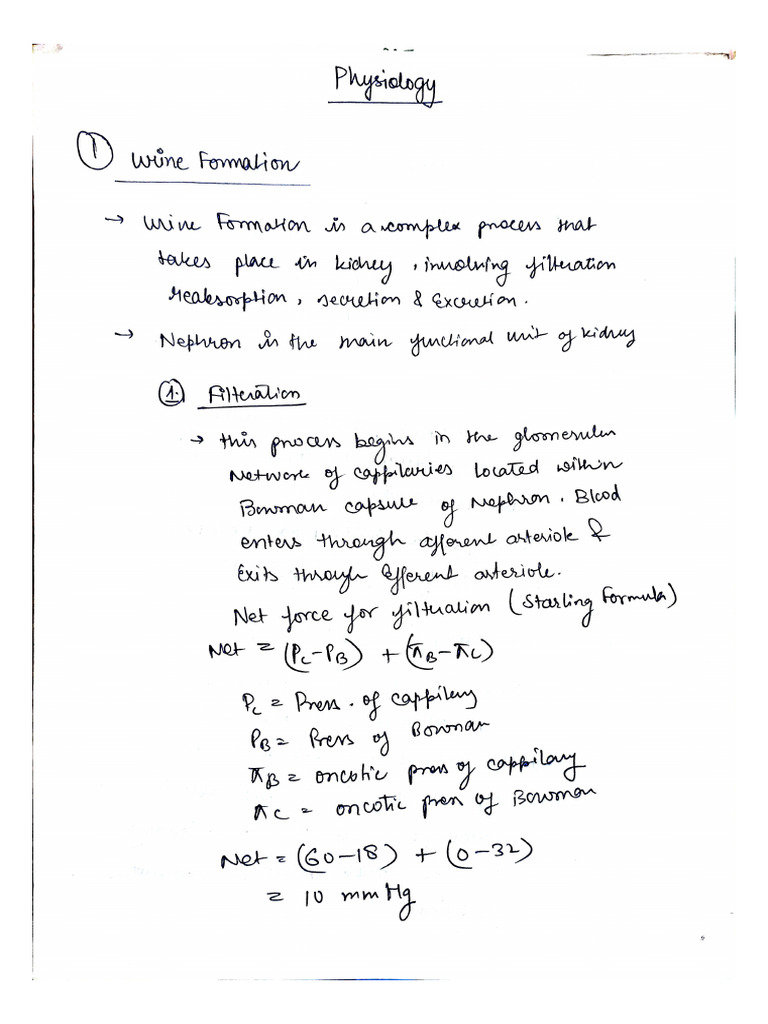 Physiology
① Urine Formation
→ Urine Formation is a complex process that
takes place in kidney, involving filteration
reabsorption, secretion & Excretion.
→ Nephron is the main functional unit of kidney
①. Filteration
→ this process begins in the glomerular
Network of cappilaries located within
Bowman capsule of Nephron. Blood
enters through afferent arteriole &
Exits through Efferent arteriole.
Net force for filteration (Starling Formula)
Net = (Pc-PB) + (πB-πC)
Pc = Press. of cappilary
PB = Press of Bowman
πB = oncotic press of cappilary
πC = oncotic press of Bowman
Net = (60-18) + (0-32)
= 10 mmHg